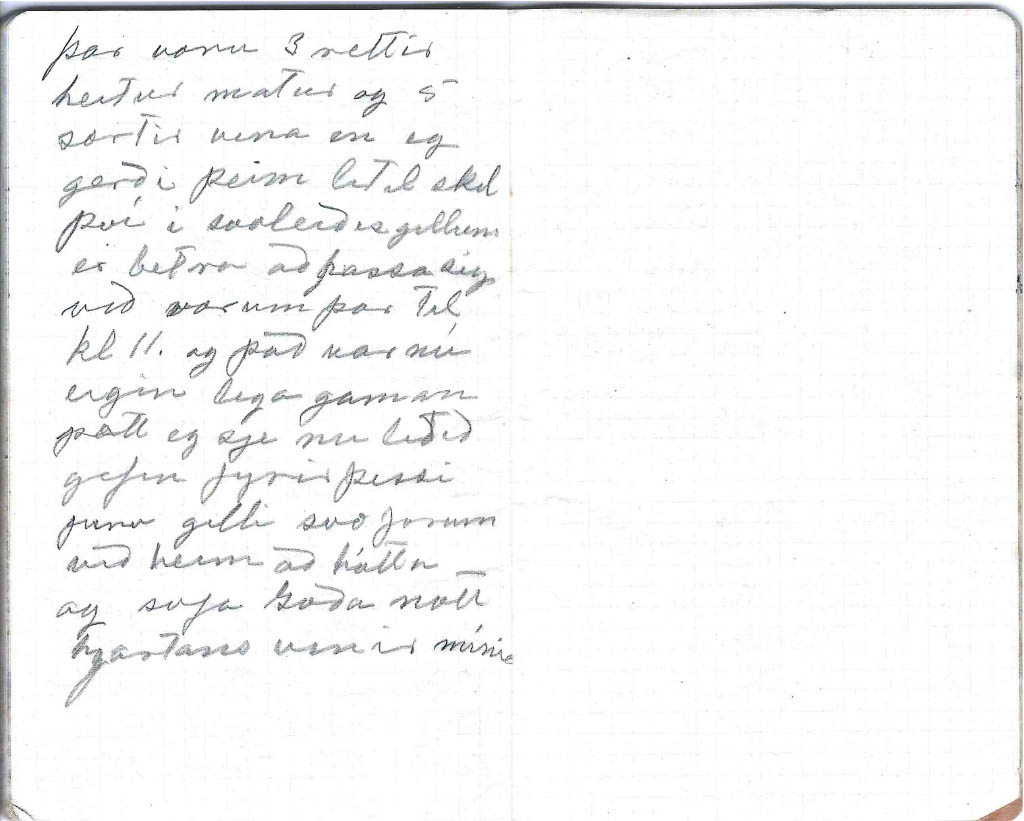 þar voru 3 rettir
heitur matur og 5
sortir vina en eg
gerði þeim litil skil
því i svoleiðis gillum
er betra að passa sig
við vorum þar til
kl 11. og það var nú
eigin lega gaman
þott eg sje nu litið
gefin fyrir þessi
fino gilli svo forum
við heim að hátta
og sofa Góða nott
hjartans vinir mínir